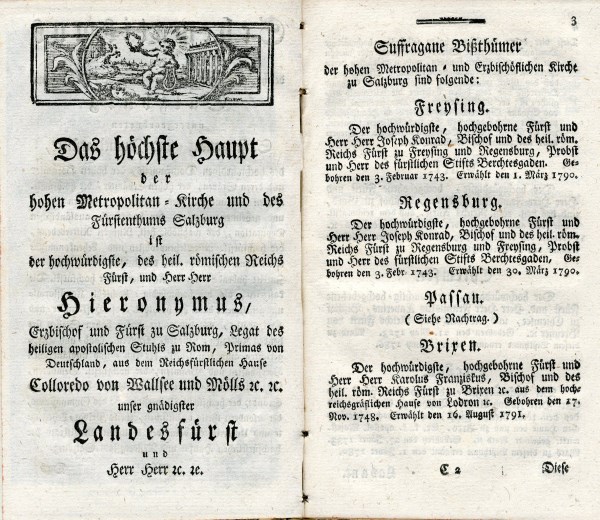 Das höchste Haupt
der
hohen Metropolitan-Kirche und des
Fürstenthums Salzburg
ist
der hochwürdigste, des heil. römischen Reichs
Fürst, und Herr Herr
Hieronymus,
Erzbischof und Fürst zu Salzburg, Legat des
heiligen apostolischen Stuhls zu Rom, Primas von
Deutschland, aus dem Reichsfürstlichen Hause
Colloredo von Wallsee und Mölls ꝛc. ꝛc.
unser gnädigster
Landesfürst
und
Herr Herr ꝛc. ꝛc.
3
Suffragane Bißthümer
der hohen Metropolitan- und Erzbischöflichen Kirche
zu Salzburg sind folgende:
Freysing.
Der hochwürdigste, hochgebohrne Fürst und
Herr Herr Joseph Konrad, Bischof und des heil. röm.
Reichs Fürst zu Freysing und Regensburg, Probst
und Herr des fürstlichen Stifts Berchtesgaden. Ge-
bohren den 3. Februar 1743. Erwählt den 1. März 1790.
Regensburg.
Der hochwürdigste, hochgebohrne Fürst und
Herr Herr Joseph Konrad, Bischof und des heil. röm.
Reichs Fürst zu Regensburg und Freysing, Probst
und Herr des fürstlichen Stifts Berchtesgaden, Ge-
bohren den 3. Febr. 1743. Erwählt den 30. März 1790.
Passau.
(Siehe Nachtrag.)
Brixen.
Der hochwürdigste, hochgebohrne Fürst und
Herr Herr Karolus Franziskus, Bischof und des
heil. röm. Reichs Fürst zu Brixen ꝛc. aus dem hoch-
reichsgräflichen Hause von Lodron ꝛc. Gebohren den 17.
Nov. 1748. Erwählt den 16. August 1791.
C 2
Diese